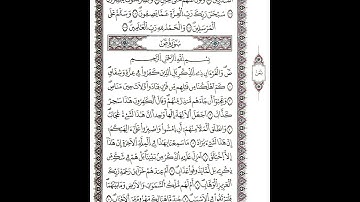 سُبْحَٰنَ رَبِّكَ رَبِّ ٱلْعِزَّةِ عَمَّا يَصِفُونَ ۝ وَسَلَٰمٌ عَلَى
ٱلْمُرْسَلِينَ ۝ وَٱلْحَمْدُ لِلَّهِ رَبِّ ٱلْعَٰلَمِينَ ۝
سُورَةُ ص
بِسْمِ ٱللَّهِ ٱلرَّحْمَٰنِ ٱلرَّحِيمِ
صٓ ۚ وَٱلْقُرْءَانِ ذِى ٱلذِّكْرِ ۝ بَلِ ٱلَّذِينَ كَفَرُوا۟ فِى عِزَّةٍ وَشِقَاقٍ ۝
كَمْ أَهْلَكْنَا مِن قَبْلِهِم مِّن قَرْنٍ فَنَادَوا۟ وَّلَاتَ حِينَ مَنَاصٍ ۝
وَعَجِبُوٓا۟ أَن جَآءَهُم مُّنذِرٌ مِّنْهُمْ ۖ وَقَالَ ٱلْكَٰفِرُونَ هَٰذَا سَٰحِرٌ
كَذَّابٌ ۝ أَجَعَلَ ٱلْءَالِهَةَ إِلَٰهًا وَٰحِدًا ۖ إِنَّ هَٰذَا لَشَىْءٌ عُجَابٌ ۝
وَٱنطَلَقَ ٱلْمَلَأُ مِنْهُمْ أَنِ ٱمْشُوا۟ وَٱصْبِرُوا۟ عَلَىٰٓ ءَالِهَتِكُمْ ۖ
إِنَّ هَٰذَا لَشَىْءٌ يُرَادُ ۝ مَا سَمِعْنَا بِهَٰذَا فِى ٱلْمِلَّةِ ٱلْءَاخِرَةِ إِنْ هَٰذَآ
إِلَّا ٱخْتِلَٰقٌ ۝ أَءُنزِلَ عَلَيْهِ ٱلذِّكْرُ مِنۢ بَيْنِنَا ۚ بَلْ هُمْ فِى شَكٍّ مِّن
ذِكْرِى ۖ بَل لَّمَّا يَذُوقُوا۟ عَذَابِ ۝ أَمْ عِندَهُمْ خَزَآئِنُ رَحْمَةِ رَبِّكَ
ٱلْعَزِيزِ ٱلْوَهَّابِ ۝ أَمْ لَهُم مُّلْكُ ٱلسَّمَٰوَٰتِ وَٱلْأَرْضِ وَمَا بَيْنَهُمَا ۖ
فَلْيَرْتَقُوا۟ فِى ٱلْأَسْبَٰبِ ۝ جُندٌ مَّا هُنَالِكَ مَهْزُومٌ مِّنَ ٱلْأَحْزَابِ ۝